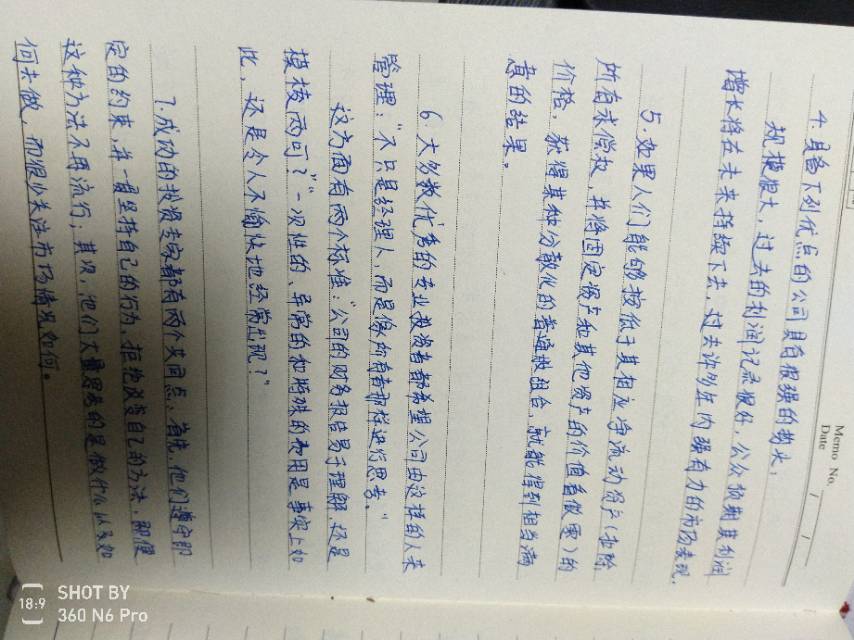 Memo No.
Date / /
4. 具备下列优点的公司具有很强的势头：
规模很大，过去的利润记录很好，公众预期其利润
增长将在未来持续下去，过去许多年内强有力的市场表现.
5. 如果人们能够按低于其相应净流动资产（扣除
所有求偿权，并将固定资产和其他资产的价值看做零）的
价格，获得某种分散化的普通股组合，就能得到相当满
意的结果。
6. 大多数优秀的专业投资者都希望公司由这样的人来
管理：“不只是经理人，而是像所有者那样进行思考。”
这方面有两个标准：“公司的财务报告易于理解，还是
模棱两可？”“一次性的、异常的和特殊的费用是事实上如
此，还是令人不愉快地经常出现？”
7. 成功的投资专家都有两个共同点，首先，他们遵守即
定的约束，并一直坚持自己的行为，拒绝改变自己的方法，那便
这种方法不再流行；其次，他们大量思考的是做什么以及如
何去做，而很少关注市场情况如何。
SHOT BY
18:9
360 N6 Pro